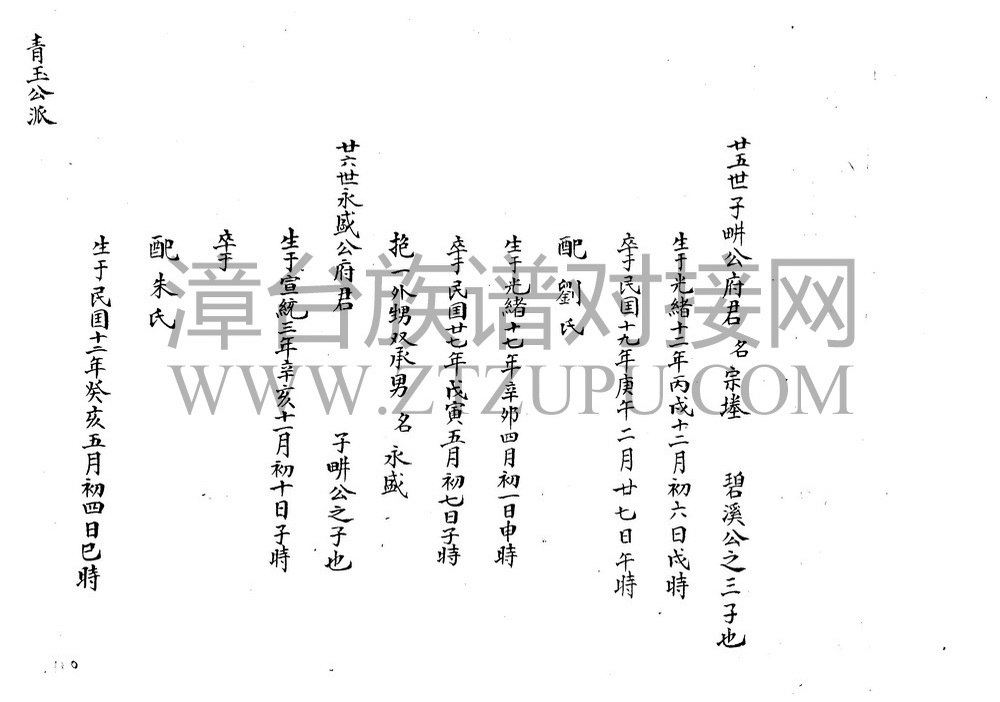 廿五世子畊公府君 名宗堘 碧溪公之三子也
生于光緒十二年丙戌十二月初六日戌時
卒于民国十九年庚午二月廿七日午時
配劉氏
生于光緒十七年辛卯四月初一日申時
卒于民国廿七年戊寅五月初七日子時
抱一外甥双承男 名永盛
廿六世永盛公府君 子畊公之子也
生于宣統三年辛亥十一月初十日子時
卒于
配朱氏
生于民国十二年癸亥五月初四日巳時
青玉公派
漳台族谱对接网
WWW.ZTZUPU.COM